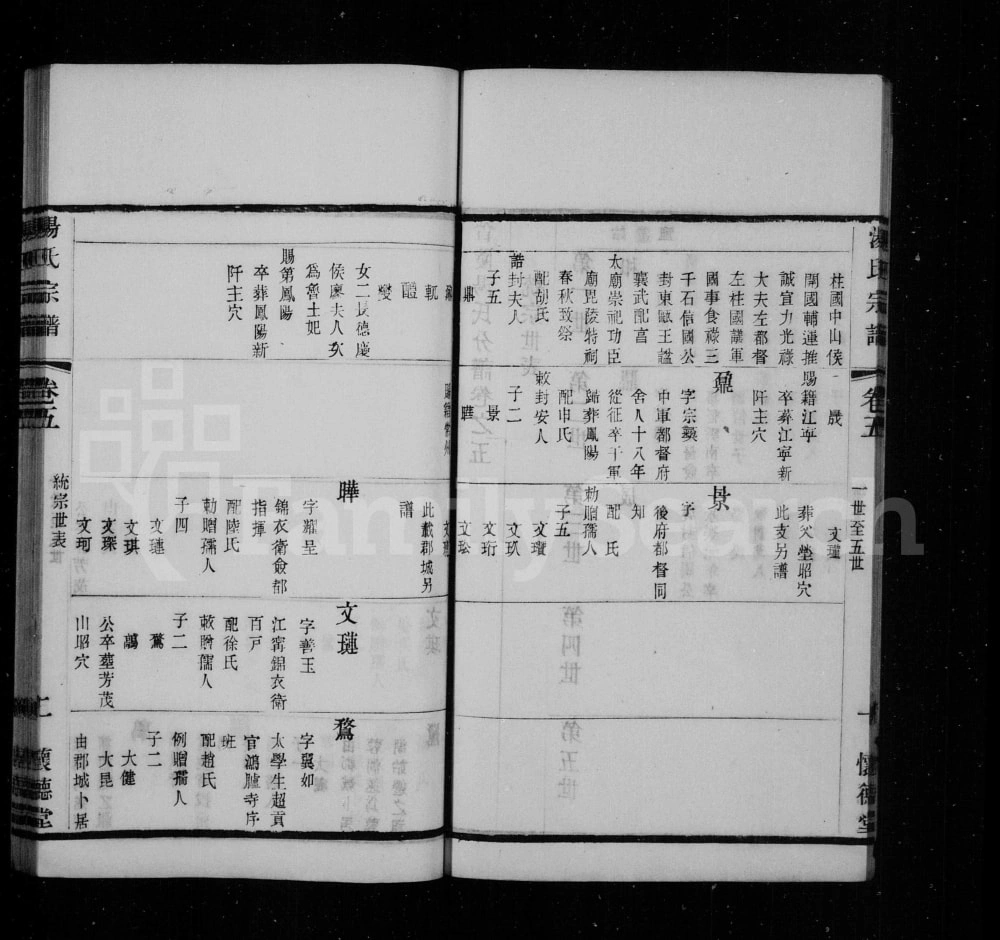 湯氏宗譜
卷五
一世至五世
懷德堂
柱國中山侯
開國輔運推
誠宣力光祿
大夫左都督
左柱國議軍
國事食祿三
千石信國公
封東甌王諡
襄武配享
太廟崇祀功臣
廟毘陵特祠
春秋致祭
配胡氏
誥封夫人
子五
鼎
軏
醴
燮
女二長德慶
侯廖夫人次
爲魯王妃
賜第鳳陽
卒葬鳳陽新
阡主穴
晟
賜籍江寧
卒葬江寧新
阡主穴
鼐
字宗彞
中軍都督府
舍人十八年
從征卒于軍
歸葬鳳陽
配申氏
敕封安人
子二
景
曄
文瓘
葬父塋昭穴
此支另譜
景
字
後府都督同
知
配 氏
勅贈孺人
子五
文瓊
文玖
文珩
文玜
此載郡城另
譜
曄
字耀呈
錦衣衛僉都
指揮
配陸氏
勅贈孺人
子四
文璉
文琪
文琛
文珂
文璉
字善玉
江甯錦衣衛
百戸
配徐氏
敕贈孺人
子二
鶩
鷸
公卒塟芳茂
山昭穴
鶩
字翼如
太學生超貢
官鴻臚寺序
班
配趙氏
例贈孺人
子二
大健
大昆
由郡城卜居
湯氏宗譜
卷五
統宗世表
二
懷德堂